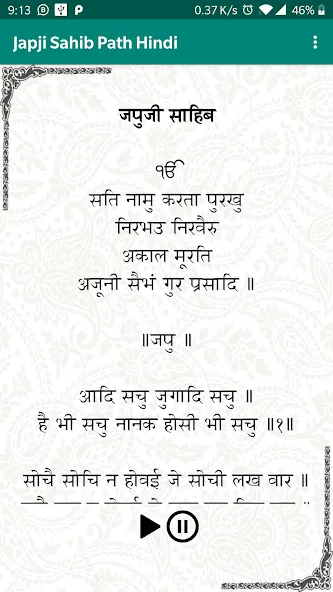 9:13 0.37 K/s 46%
Japji Sahib Path Hindi
जपुजी साहिब
ੴ
सति नामु करता पुरखु
निरभउ निरवैरु
अकाल मूरति
अजूनी सैभं गुर प्रसादि ॥
॥जपु ॥
आदि सचु जुगादि सचु ॥
है भी सचु नानक होसी भी सचु ॥१॥
सोचै सोचि न होवई जे सोची लख वार ॥